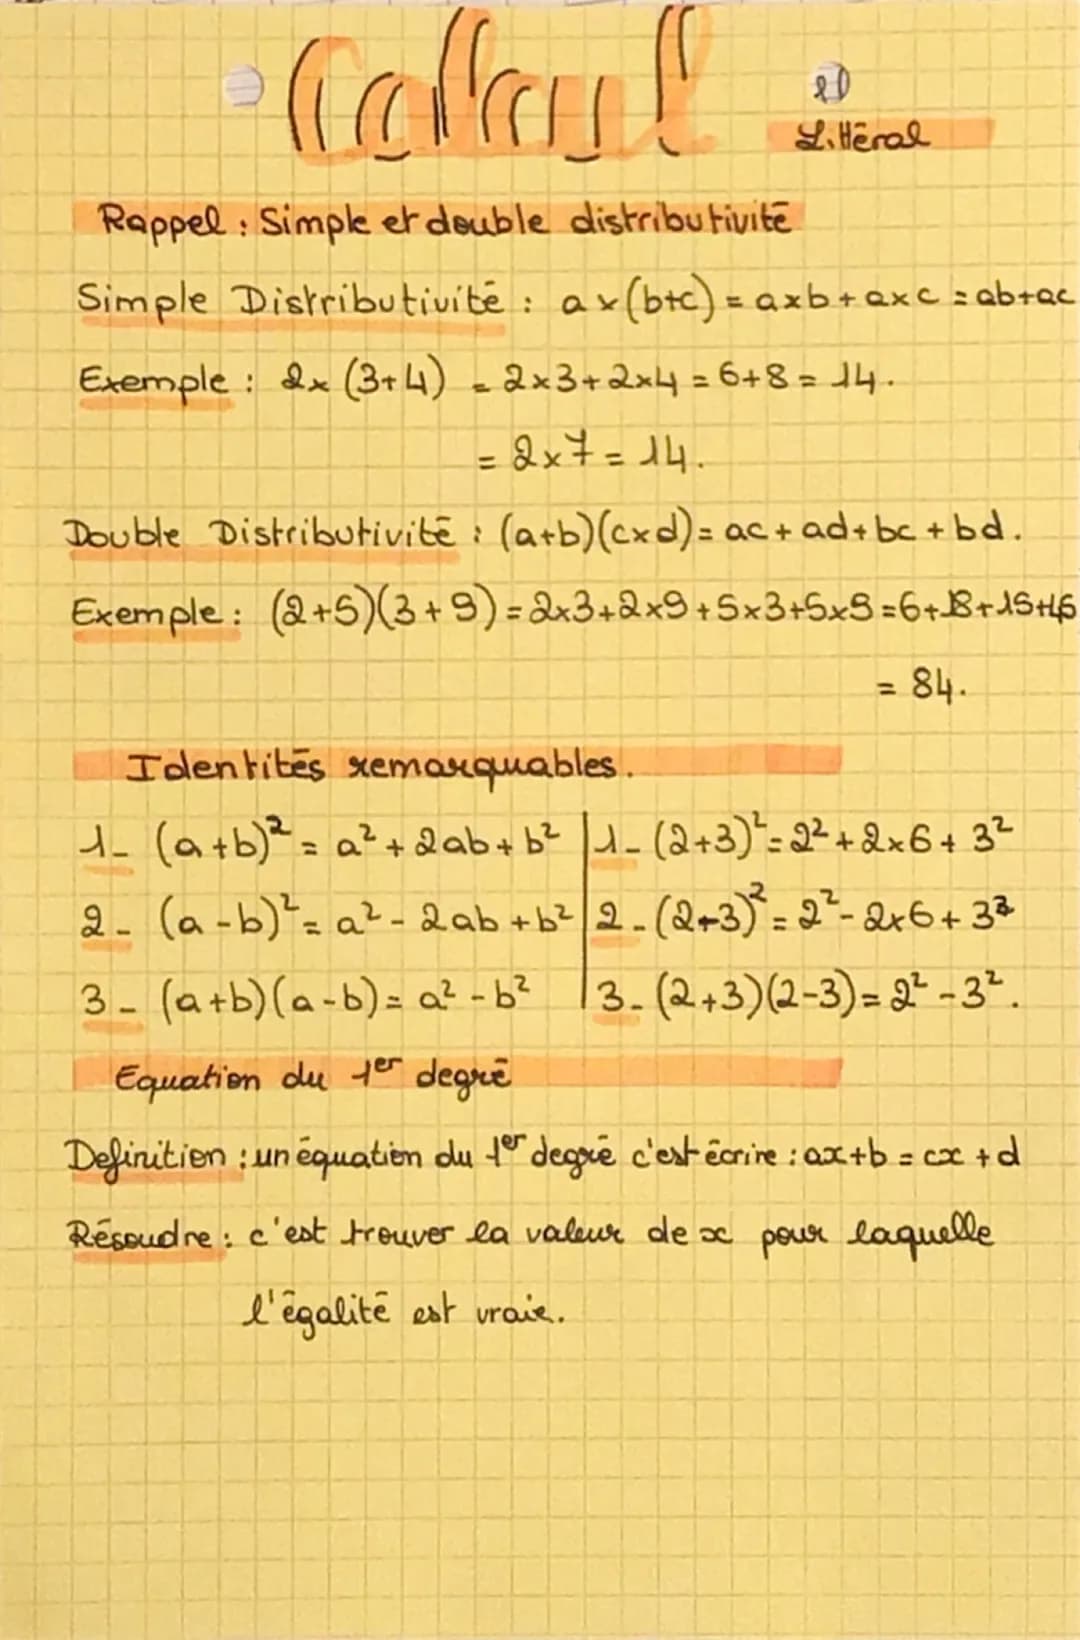 Calcul
Littéral
Rappel : Simple et double distributivité
Simple Distributivité : a x (b+c) = axb + axc = ab+ac
Exemple : 2x (3+4) = 2x3+2x4 = 6+8 = 14.
= 2x7 = 14.
Double Distributivité : (a+b)(cxd) = ac + ad + bc + bd.
Exemple : (2+5)(3+9) = 2x3+2x9+5x3+5x9 = 6+18+15+45
= 84.
Identités remarquables.
1- (a+b)² = a² + 2ab + b² | 1- (2+3)² = 2² + 2x6 + 3²
2- (a-b)² = a² - 2ab + b² | 2- (2-3)² = 2² - 2x6 + 3²
3- (a+b)(a-b) = a² - b² | 3- (2+3)(2-3) = 2² - 3².
Equation du 1er degré
Definition : un équation du 1er degré c'est écrire : ax+b = cx + d
Résoudre : c'est trouver la valeur de x pour laquelle
l'égalité est vraie.